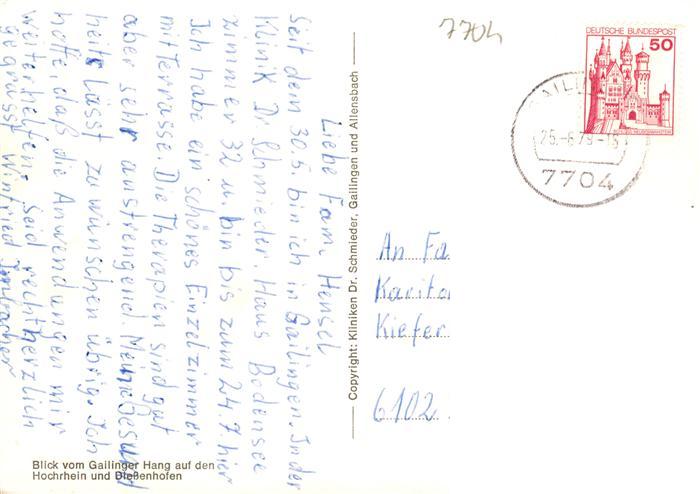 Liebe Fam. Hensel
Seit dem 30.5. bin ich in Gailingen. In der
Klinik Dr. Schmieder. Haus Bodensee
Zimmer 32 u. bin bis zum 24.7. hier
Ich habe ein schönes Einzelzimmer
mit Terrasse. Die Therapien sind gut
aber sehr anstrengend. Meine Gesund
heit lässt zu wünschen übrig. Ich
hoffe, daß die Anwendungen mir
weiterhelfen. Seid recht herzlich
gegrüsst Winfried
Blick vom Gailinger Hang auf den
Hochrhein und Dießenhofen
Copyright: Kliniken Dr. Schmieder, Gailingen und Allensbach
7704
DEUTSCHE BUNDESPOST
50
25.-6.79-15
7704
An Fa
Karita
Kiefer
6102